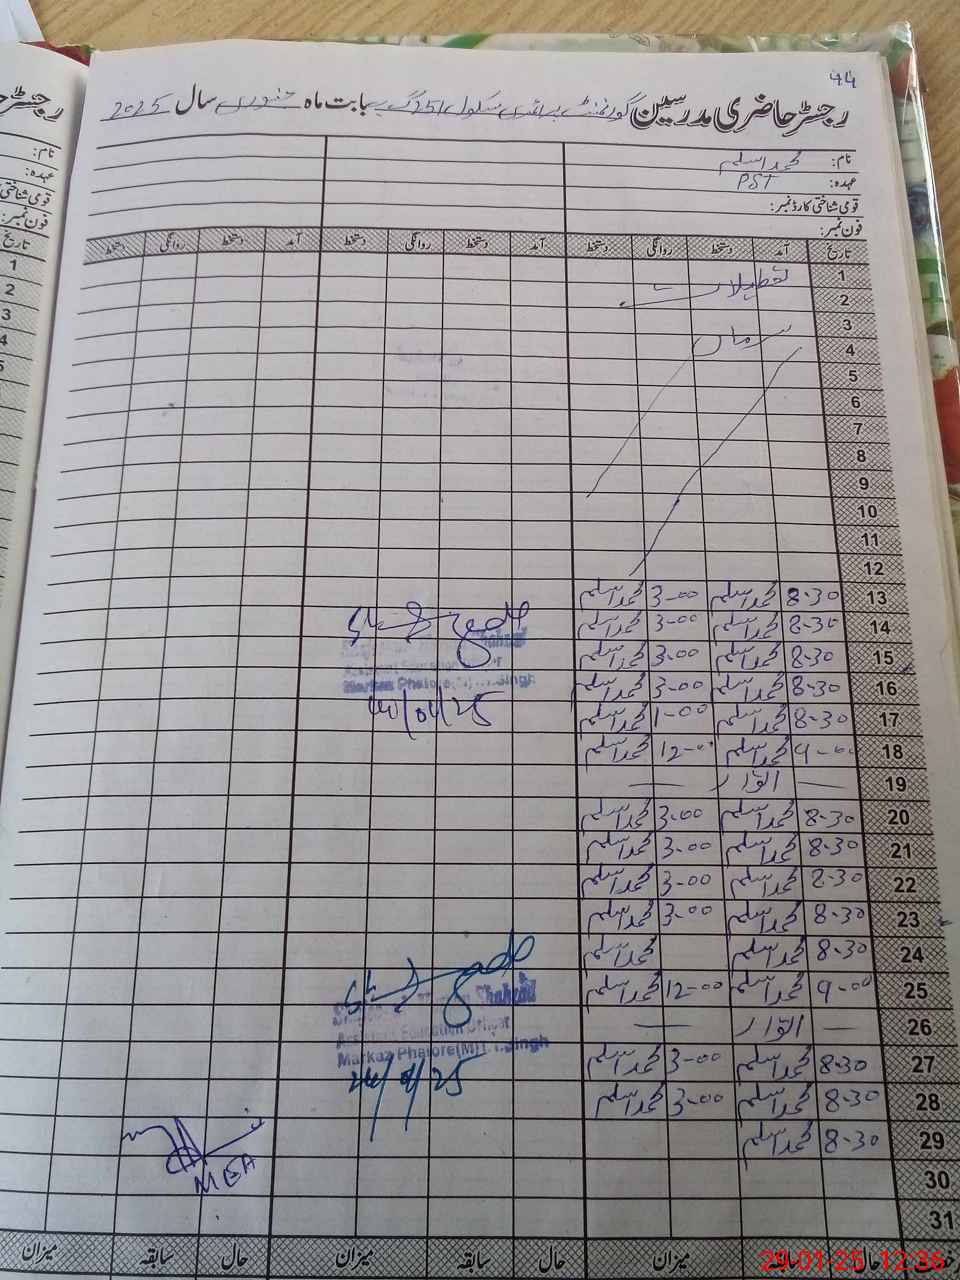 44
رجسٹر حاضری مدرسین گورنمنٹ پرائمری سکول 251 گ ب بابت ماہ جنوری سال 2025
نام: محمد اسلم
عہدہ: PST
قومی شناختی کارڈ نمبر:
فون نمبر:
تاریخ آمد دستخط روانگی دستخط آمد دستخط روانگی دستخط آمد دستخط روانگی دستخط
1 تعطیلات
2
3 سرما
4
5
6
7
8
9
10
11
12
13 8-30 محمد اسلم 3-00 محمد اسلم
14 8-30 محمد اسلم 3-00 محمد اسلم
15 8-30 محمد اسلم 3-00 محمد اسلم
16 8-30 محمد اسلم 3-00 محمد اسلم
17 8-30 محمد اسلم 1-00 محمد اسلم
18 9-00 محمد اسلم 12-00 محمد اسلم
19 — اتوار —
20 8-30 محمد اسلم 3-00 محمد اسلم
21 8-30 محمد اسلم 3-00 محمد اسلم
22 8-30 محمد اسلم 3-00 محمد اسلم
23 8-30 محمد اسلم 3-00 محمد اسلم
24 8-30 محمد اسلم محمد اسلم
25 9-00 محمد اسلم 12-00 محمد اسلم
26 — اتوار —
27 8-30 محمد اسلم 3-00 محمد اسلم
28 8-30 محمد اسلم 3-00 محمد اسلم
29 8-30 محمد اسلم
30
31
Shahzad
Assistant Education Officer
Markaz Phalore(M) T.T.Singh
Shahzad
Assistant Education Officer
Markaz Phalore(M) T.T.Singh
MEA
حال میزان حال سابقہ میزان حال سابقہ میزان
29-01-25 12:36
رجسٹر
نام:
عہدہ:
قومی شناختی
فون نمبر:
تاریخ
1
2
3
4
5